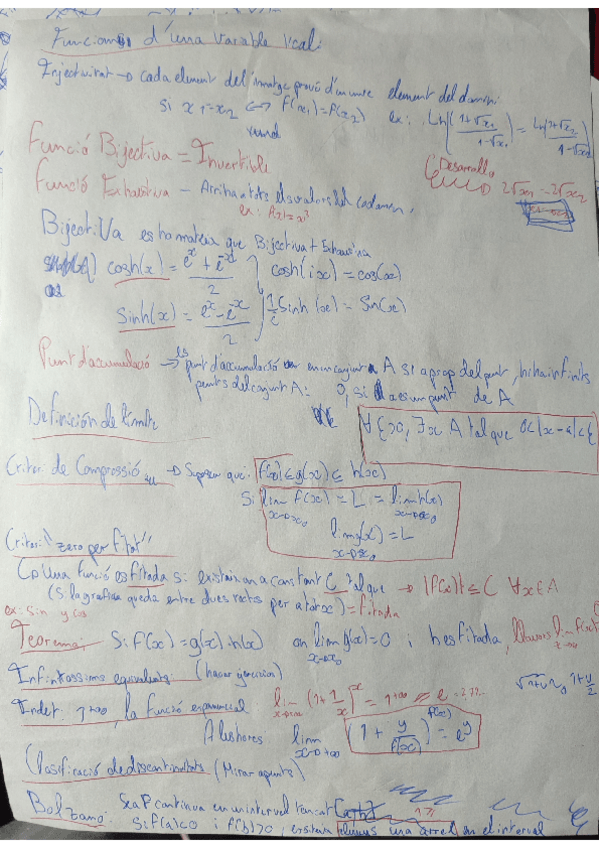 Funcions d'una variable real:
Injectivitat → cada element del imatge prové d'un unic element del domini
Si x₁=x₂ ⟺ f(x₁)=f(x₂) ex: Ln((1+√x₁)/(1-√x₁)) = Ln((1+√x₂)/(1-√x₂))
Funció Bijectiva = Invertible
Desarrollo
2√x₁ = 2√x₂
Funció Exhaustiva - Arriba a tots els valors del codomini,
ex: f(x)=x³
Bijectiva es la mateix que Bijectiva + Exhaustiva
cosh(x) = (eˣ + e⁻ˣ)/2 cosh(ix) = cos(x)
sinh(x) = (eˣ - e⁻ˣ)/2 1/i sinh(ix) = Sin(x)
Punt d'acumulació → Es punt d'acumulació en un conjunt A si aprop del punt, hi ha infinits
punts del conjunt A: o, si a es un punt de A
Definición de límite
∀ε>0, ∃x A tal que 0<|x-a|<ε
Criteri de Compressió → Suposem que: f(x)≤g(x)≤h(x)
Si lim x→x₀ f(x) = L = lim x→x₀ h(x)
lim x→x₀ g(x) = L
Criteri "zero per fitat"
Una funció es fitada si existeix una constant C tal que → |f(x)| ≤ C ∀x∈A
(Si la grafica queda entre dues rectes per a tot x) = fitada
ex: sin y cos
Teorema: Si f(x) = g(x)·h(x) on lim x→x₀ g(x)=0 i h es fitada, llavors lim f(x)
Infinitessims equivalents: (hacer ejercicios)
Indet. 1^+∞, la funció exponencial lim (1+1/x)ˣ = 1^+∞ = e = 2.71...
Aleshores lim x→+∞ (1 + y/f(x))^f(x) = e^y
Clasificació de discontinuitats (Mirar apunts)
Bolzano: Sea f continua en un interval tancat [a,b]
Si f(a)<0 i f(b)>0, existeix almenys una arrel en el interval